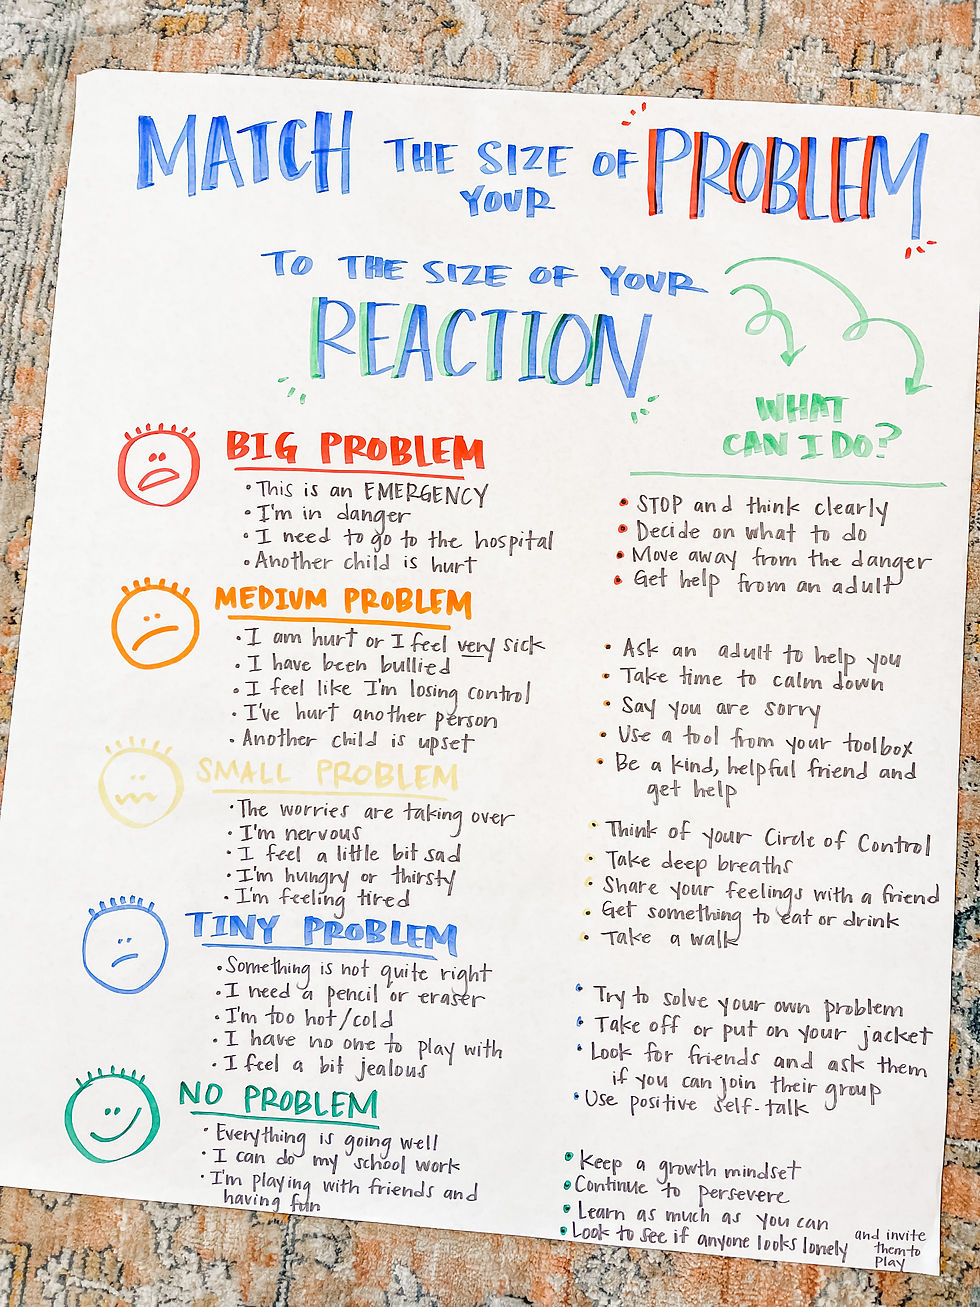 MATCH THE SIZE OF PROBLEM
YOUR
TO THE SIZE OF YOUR
REACTION
WHAT
CAN I DO?
BIG PROBLEM
• This is an EMERGENCY
• I'm in danger
• I need to go to the hospital
• Another child is hurt
• STOP and think clearly
• Decide on what to do
• Move away from the danger
• Get help from an adult
MEDIUM PROBLEM
• I am hurt or I feel very sick
• I have been bullied
• I feel like I'm losing control
• I've hurt another person
• Another child is upset
• Ask an adult to help you
• Take time to calm down
• Say you are sorry
• Use a tool from your toolbox
• Be a kind, helpful friend and
get help
SMALL PROBLEM
• The worries are taking over
• I'm nervous
• I feel a little bit sad
• I'm hungry or thirsty
• I'm feeling tired
• Think of your Circle of Control
• Take deep breaths
• Share your feelings with a friend
• Get something to eat or drink
• Take a walk
TINY PROBLEM
• Something is not quite right
• I need a pencil or eraser
• I'm too hot/cold
• I have no one to play with
• I feel a bit jealous
• Try to solve your own problem
• Take off or put on your jacket
• Look for friends and ask them
if you can join their group
• Use positive self-talk
NO PROBLEM
• Everything is going well
• I can do my school work
• I'm playing with friends and
having fun
• Keep a growth mindset
• Continue to persevere
• Learn as much as you can
• Look to see if anyone looks lonely and invite
them to
play